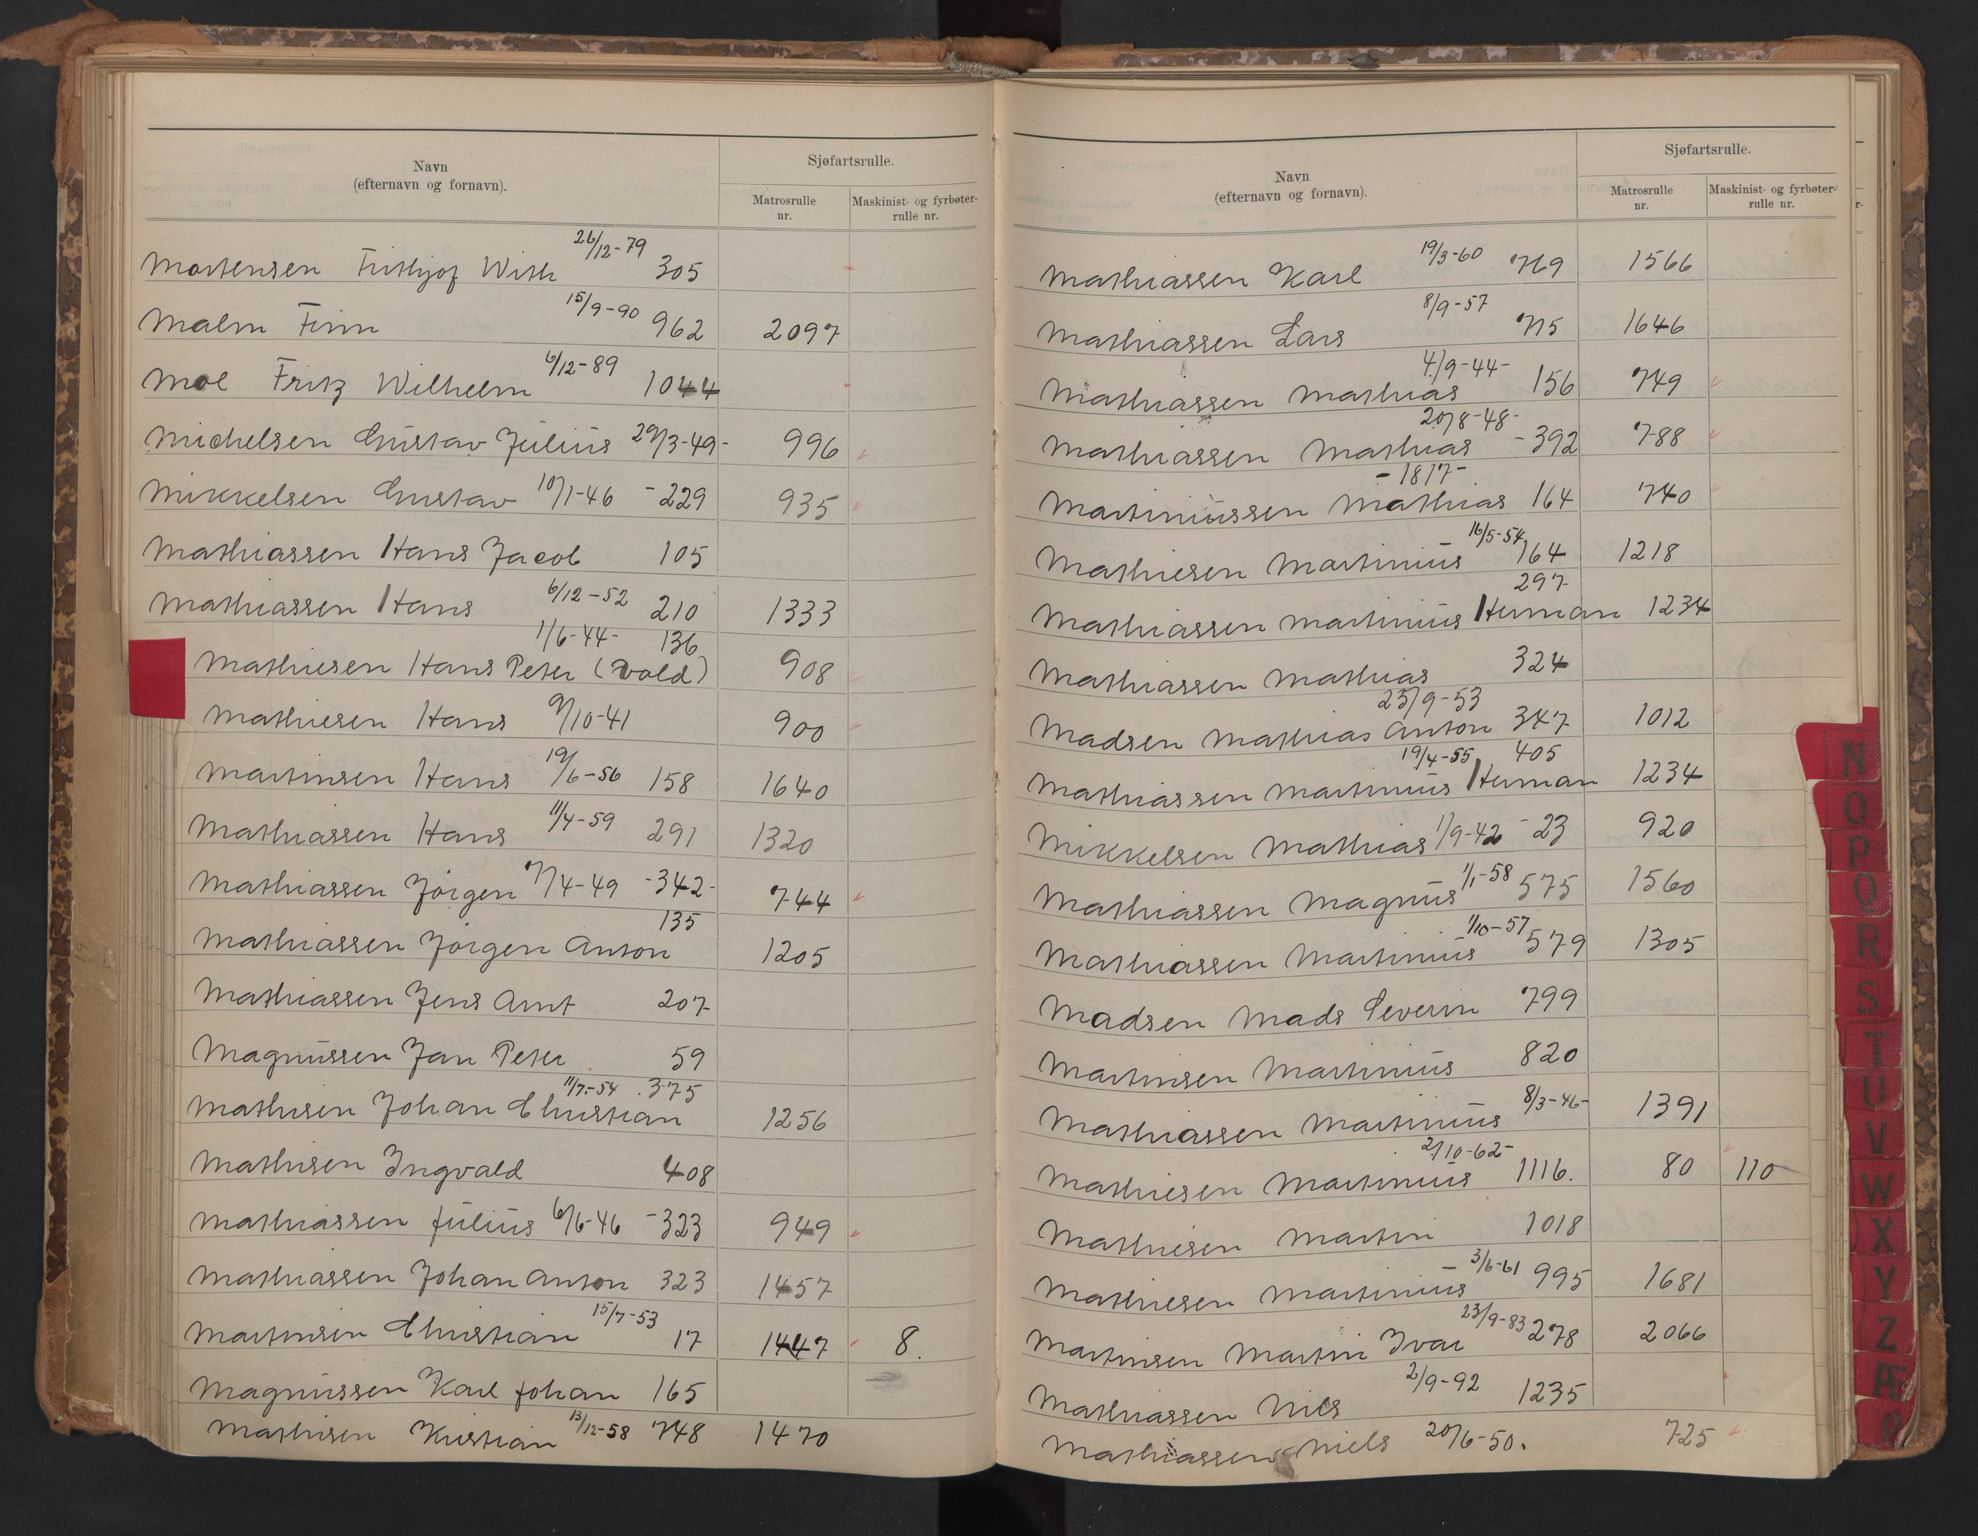 Navn
(efternavn og fornavn).
Sjøfartsrulle.
Matrosrulle nr.
Maskinist- og fyrbøter-rulle nr.
Mortensen Frithjof With 26/12-79 305
Malm Finn 15/9-90 962 2097
Mol Fritz Wilhelm 6/12-89 1044
Michelsen Gustav Julius 29/3-49- 996
Mikkelsen Gustav 10/1-46 -229 935
Mathiassen Hans Jacob 105
Mathiassen Hans 6/12-52 210 1333
1/6-44- 136
Mathiesen Hans Peter (Vold) 908
Mathiesen Hans 9/10-41 900
Martinsen Hans 19/6-56 158 1640
Mathiassen Hans 11/4-59 291 1320
Mathiassen Jörgen 7/4-49 -342- 744
135
Mathiassen Jörgen Anton 1205
Mathiassen Jens Arnt 207
Magnussen Jan Peter 59
11/7-54 375
Mathisen Johan Christian 1256
Mathisen Ingvald 408
Mathiassen Julius 6/6-46 -323 949
Mathiassen Johan Anton 323 1457
Martinsen Christian 15/7-53 17 1447 8.
Magnussen Karl Johan 165
Mathisen Kristian 13/12-58 748 1470
Navn
(efternavn og fornavn).
Sjøfartsrulle.
Matrosrulle nr.
Maskinist- og fyrbøter-rulle nr.
Mathiassen Karl 19/3-60 769 1566
Mathiassen Lars 8/9-57 715 1646
Mathiassen Mathias 4/9-44- 156 749
Mathiassen Mathias 20/8-48- -392 788
Martiniussen Mathias -1817- 164 740
Mathiesen Martinius 16/5-54 164 1218
297
Mathiassen Martinius Herman 1234
Mathiassen Mathias 324
Madsen Mathias Anton 23/9-53 347 1012
19/4-55 405
Mathiassen Martinius Herman 1234
Mikkelsen Mathias 1/9-42 -23 920
Mathiassen Magnus 1/1-58 575 1560
Mathiassen Martinius 1/10-57 579 1305
Madsen Mads Severin 799
Martinsen Martinius 820
Mathiassen Martinius 8/3-46- 1391
Mathiesen Martinius 2/10-62- 1116. 80 110
Mathiesen Martin 1018
Mathiesen Martinius 3/6-61 995 1681
Martinsen Martin Ivar 23/9-83 278 2066
Mathiassen Nils 2/9-92 1235
Mathiassen Niels 20/6-50. 725
N
O
P
Q
R
S
T
U
V
W
X
Y
Z
Æ
Ø